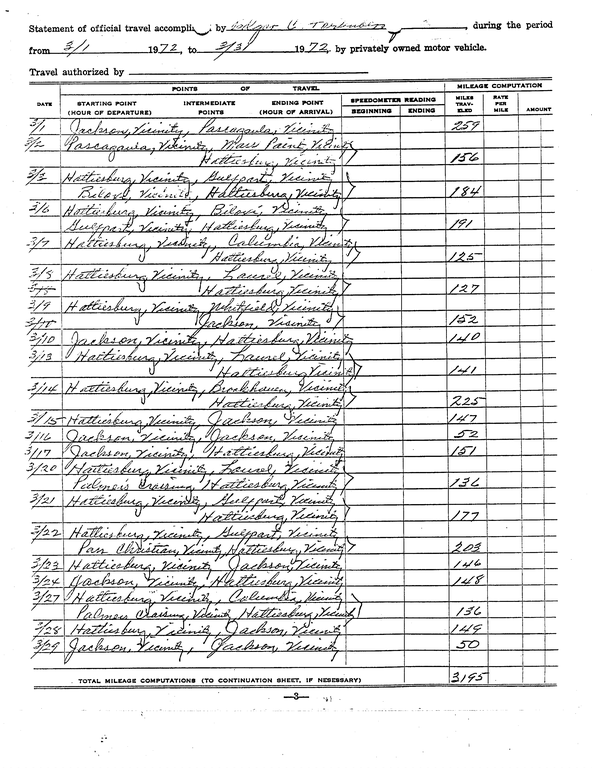 Statement of official travel accomplis by during the period
from 3/1 1972, to 3/31 1972, by privately owned motor vehicle.
Travel authorized by
POINTS OF TRAVEL MILEAGE COMPUTATION
DATE STARTING POINT (HOUR OF DEPARTURE) INTERMEDIATE POINTS ENDING POINT (HOUR OF ARRIVAL) SPEEDOMETER READING BEGINNING ENDING MILES TRAV- ELED RATE PER MILE AMOUNT
3/1 Jackson, Vicinity, Pascagoula, Vicinity 259
3/2 Pascagoula, Vicinity, Moss Point, Vicinity
Hattiesburg, Vicinity 156
3/3 Hattiesburg, Vicinity, Gulfport, Vicinity
Biloxi, Vicinity, Hattiesburg, Vicinity 184
3/6 Hattiesburg, Vicinity, Biloxi, Vicinity
Gulfport, Vicinity, Hattiesburg, Vicinity 191
3/7 Hattiesburg, Vicinity, Columbia, Vicinity
Hattiesburg, Vicinity 125
3/8 Hattiesburg, Vicinity, Laurel, Vicinity
Hattiesburg, Vicinity 127
3/9 Hattiesburg, Vicinity, Whitfield, Vicinity
Jackson, Vicinity 152
3/10 Jackson, Vicinity, Hattiesburg, Vicinity 140
3/13 Hattiesburg, Vicinity, Laurel, Vicinity
Hattiesburg, Vicinity 141
3/14 Hattiesburg, Vicinity, Brookhaven, Vicinity
Hattiesburg, Vicinity 225
3/15 Hattiesburg, Vicinity, Jackson, Vicinity 147
3/16 Jackson, Vicinity, Jackson, Vicinity 52
3/17 Jackson, Vicinity, Hattiesburg, Vicinity 151
3/20 Hattiesburg, Vicinity, Laurel, Vicinity
Palmers Craising, Hattiesburg, Vicinity 136
3/21 Hattiesburg, Vicinity, Gulfport, Vicinity
Hattiesburg, Vicinity 177
3/22 Hattiesburg, Vicinity, Gulfport, Vicinity
Pass Christian, Vicinity, Hattiesburg, Vicinity 203
3/23 Hattiesburg, Vicinity, Jackson, Vicinity 146
3/24 Jackson, Vicinity, Hattiesburg, Vicinity 148
3/27 Hattiesburg, Vicinity, Columbia, Vicinity
Palmers Craising, Vicinity, Hattiesburg, Vicinity 136
3/28 Hattiesburg, Vicinity, Jackson, Vicinity 149
3/29 Jackson, Vicinity, Jackson, Vicinity 50
TOTAL MILEAGE COMPUTATIONS (TO CONTINUATION SHEET, IF NESESSARY) 3195
—3—